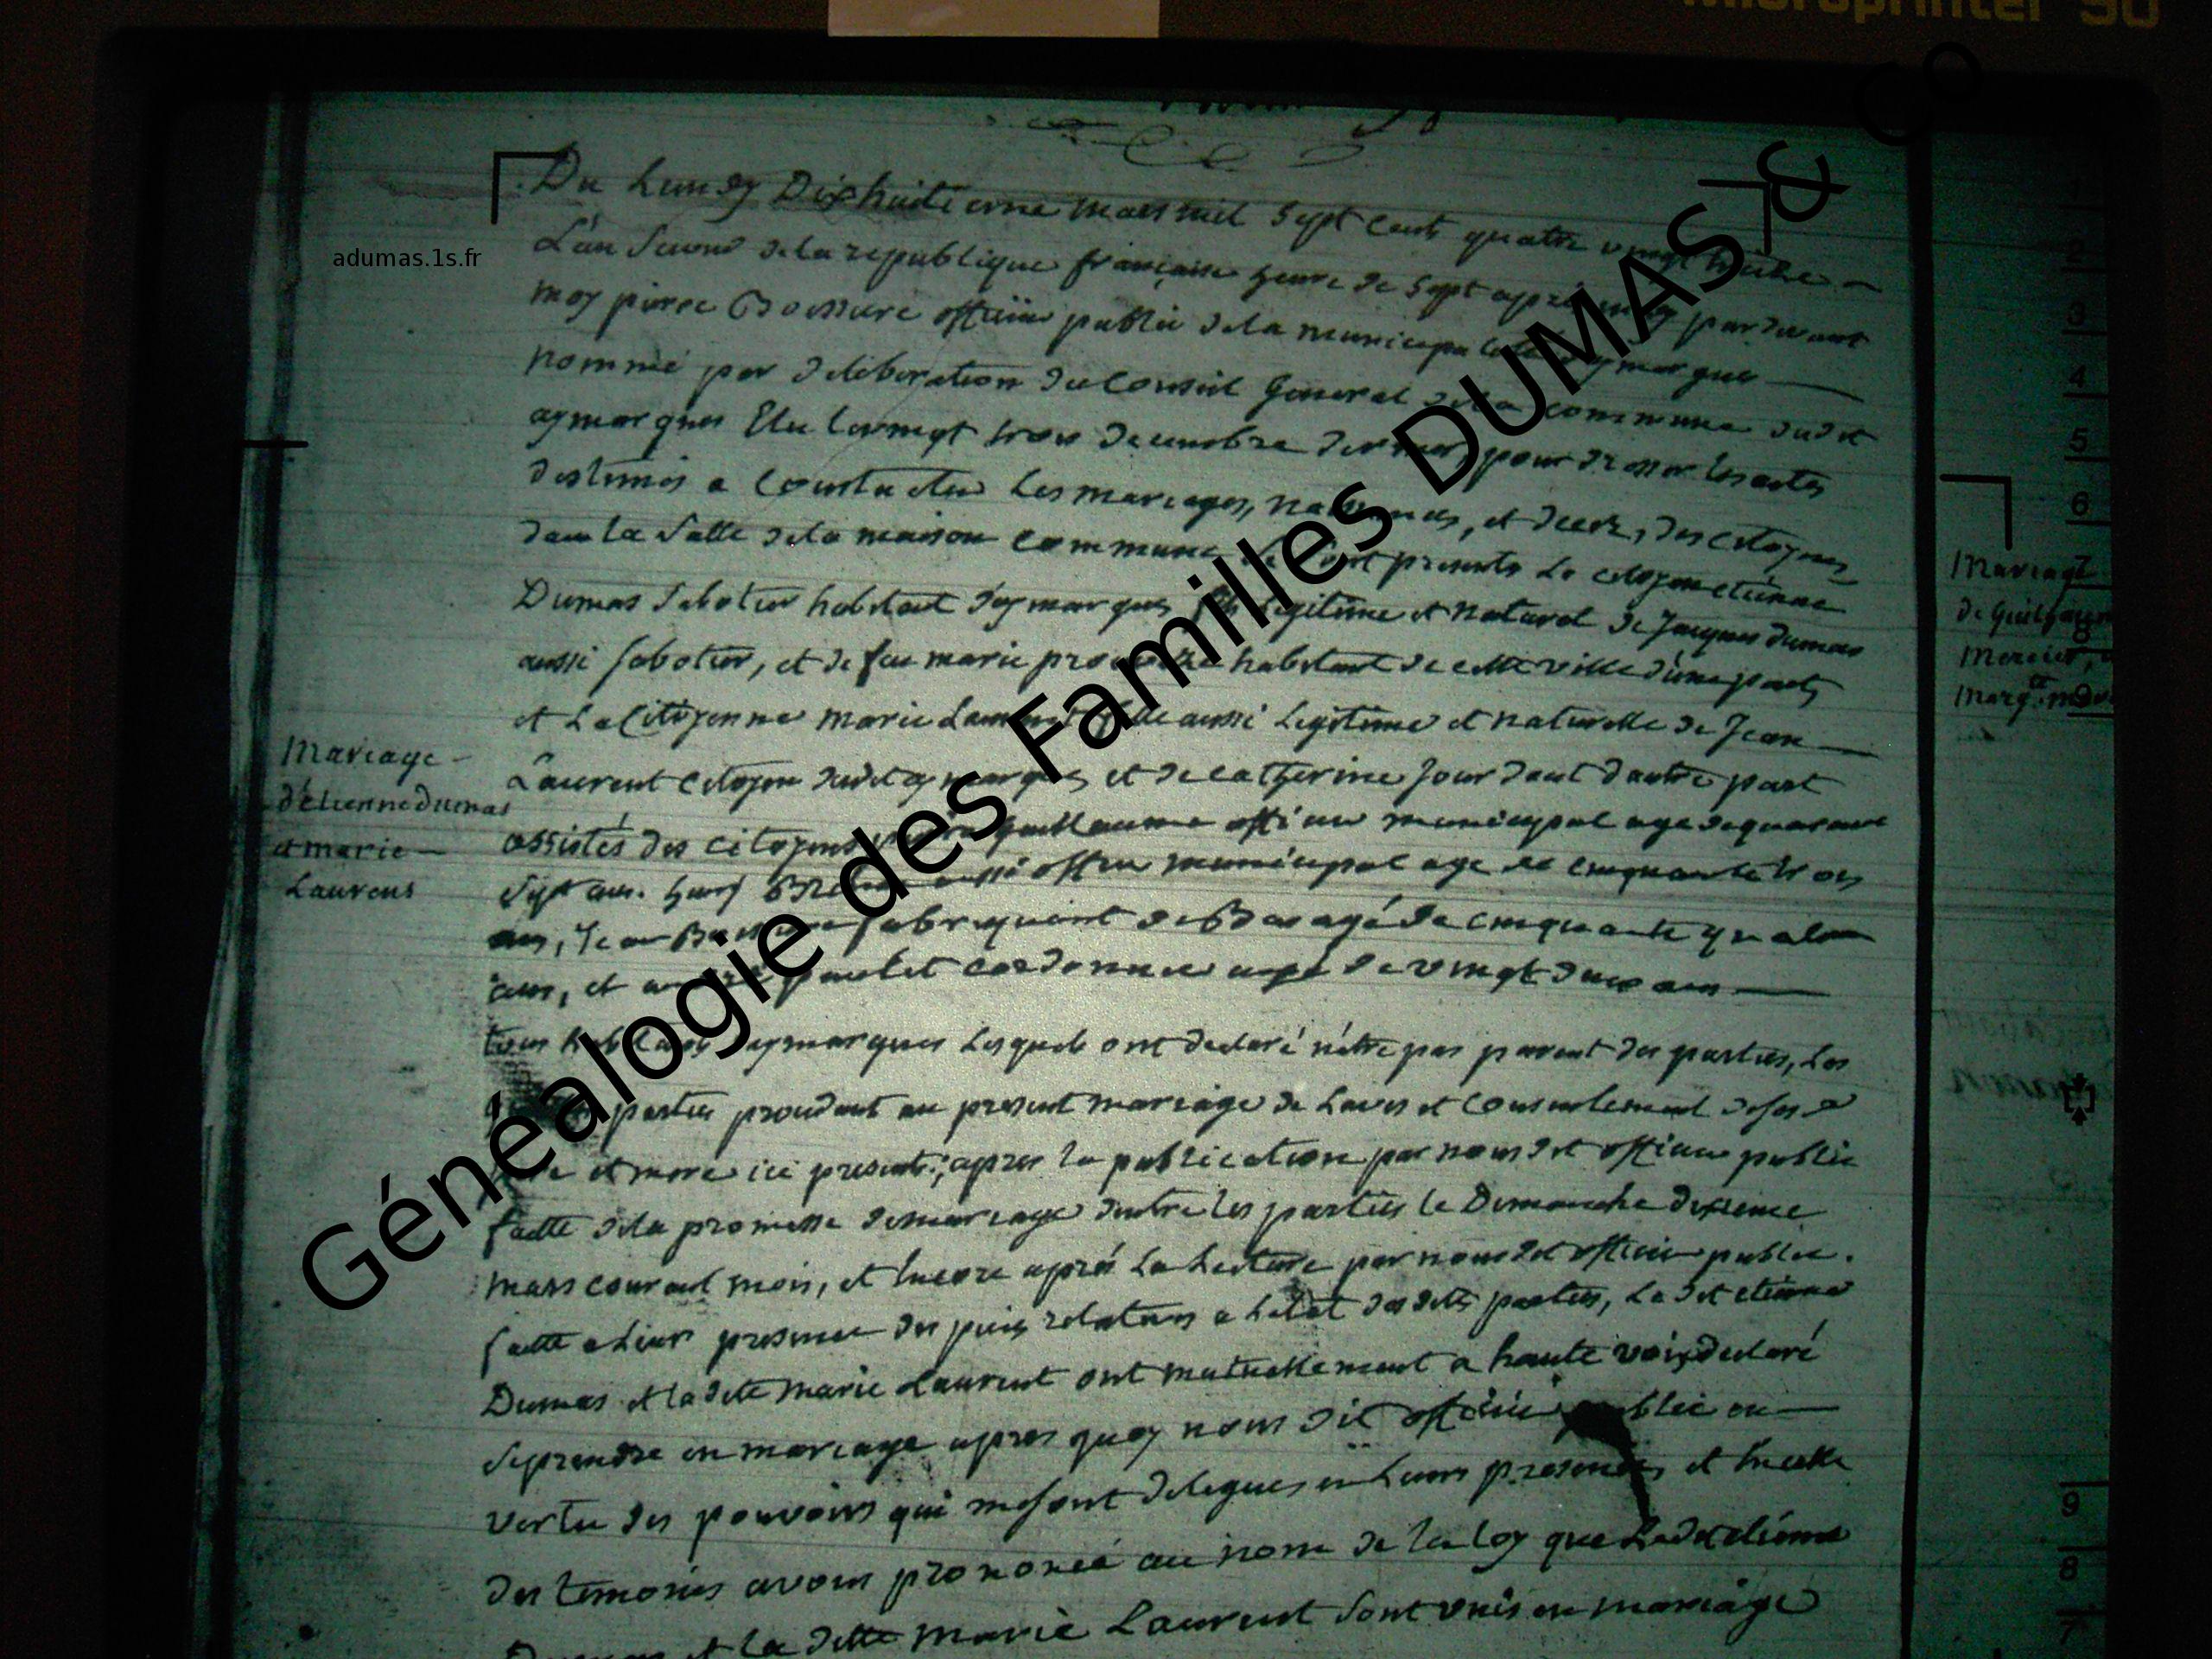 Du Lundy Dixhuitieme mars mil sept cent quatre vingt treize
L'an second de la republique française heure de sept après midy pardevant
moy pierre officier public de la municipalité d'aymargues
nommé par deliberation du Conseil General de la commune dudit
aymargues Elu le vingt trois decembre dernier, pour dresser les actes
destinés a Constater Les mariages, naissances, et decez, des citoyens
dans la salle de la maison commune se sont presentés Le citoyen etienne
Dumas sabotier habitant d'aymargues fils Legitime et naturel de Jacques dumas
aussi sabotier, et de feu marie habitant de cette ville d'une part,
et La Citoyenne marie Laurent fille aussi Legitime et naturelle de Jean
Laurent citoyen dudit aymargues et de catherine Jourdant d'autre part
assistés des citoyens guillaume officier municipal age de quarante
sept ans. aussi officier municipal age de cinquante trois
ans, Jean fabriquant de Bas agé de cinquante quatre
ans, et paulet cordonnier agé de vingt deux ans
tous habitans d'aymargues Lesquels ont declaré n'étre pas parent des parties, Les
parties procedant au present mariage de L'avis et Consentement de ses
père et mere ici presents; apres la publication par nous dit officier public
faitte de la promesse de mariage d'entre les parties le Dimanche dixieme
mars courant mois, et Encore après La Lecture par nous dit officier public.
faitte a Leur presence des pieces relatives a L'etat desdites parties, Le dit etienne
Dumas et la dite marie Laurent ont mutuellement a haute voix declaré
se prendre en mariage apres quoy nous dit officier public en
vertu des pouvoirs qui me sont delegués en Leurs presences, et En celle
des temoins avons prononcé au nom de la Loy que Ledit etienne
Dumas et la ditte marie Laurent sont unis en mariage
Mariage
d'etienne dumas
et marie
Laurens
Mariage
de Guilhaume
Mercier,
adumas.1s.fr
Généalogie des Familles DUMAS & C°
Microprinter 90
1
2
3
4
5
6
7
8
9
9
8
7